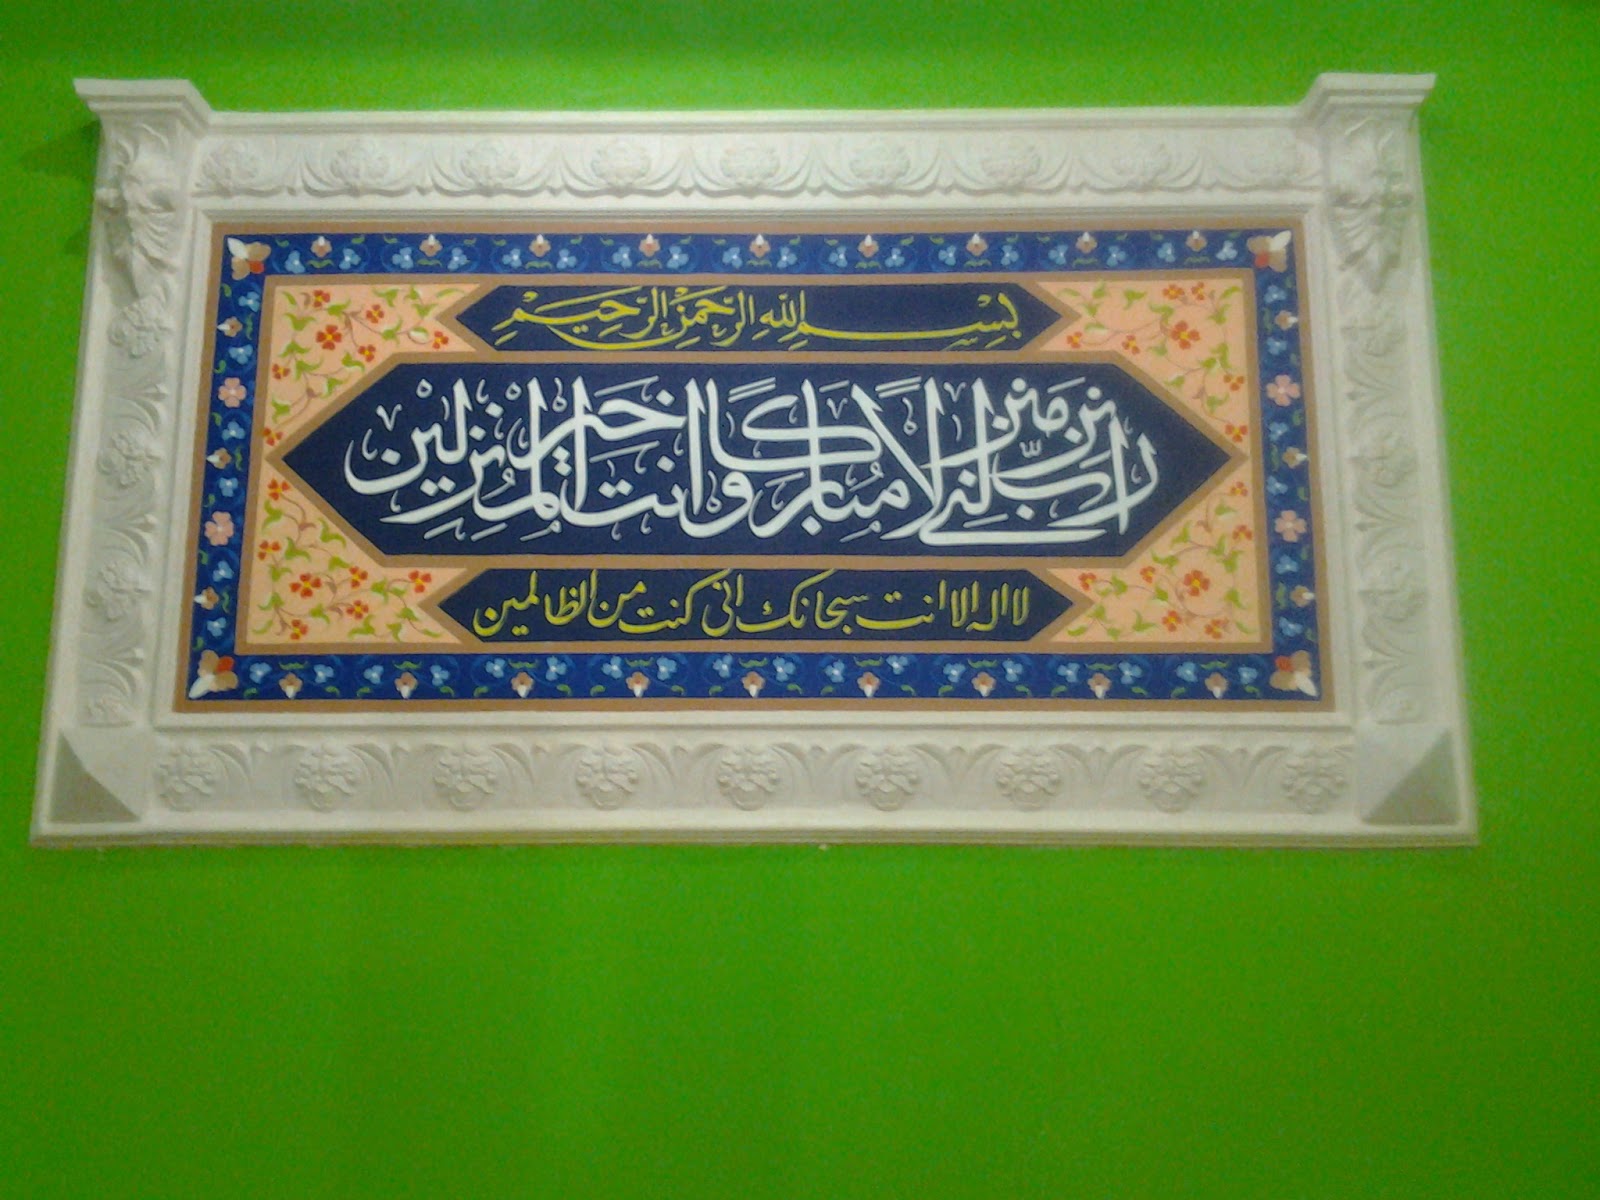 بِسْمِ اللّٰهِ الرَّحْمٰنِ الرَّحِيْمِ
رَبِّ أَنْزِلْنِي مُنْزَلًا مُبَارَكًا وَأَنْتَ خَيْرُ الْمُنْزِلِيْنَ
لا اله الا انت سبحانك انى كنت من الظالمين